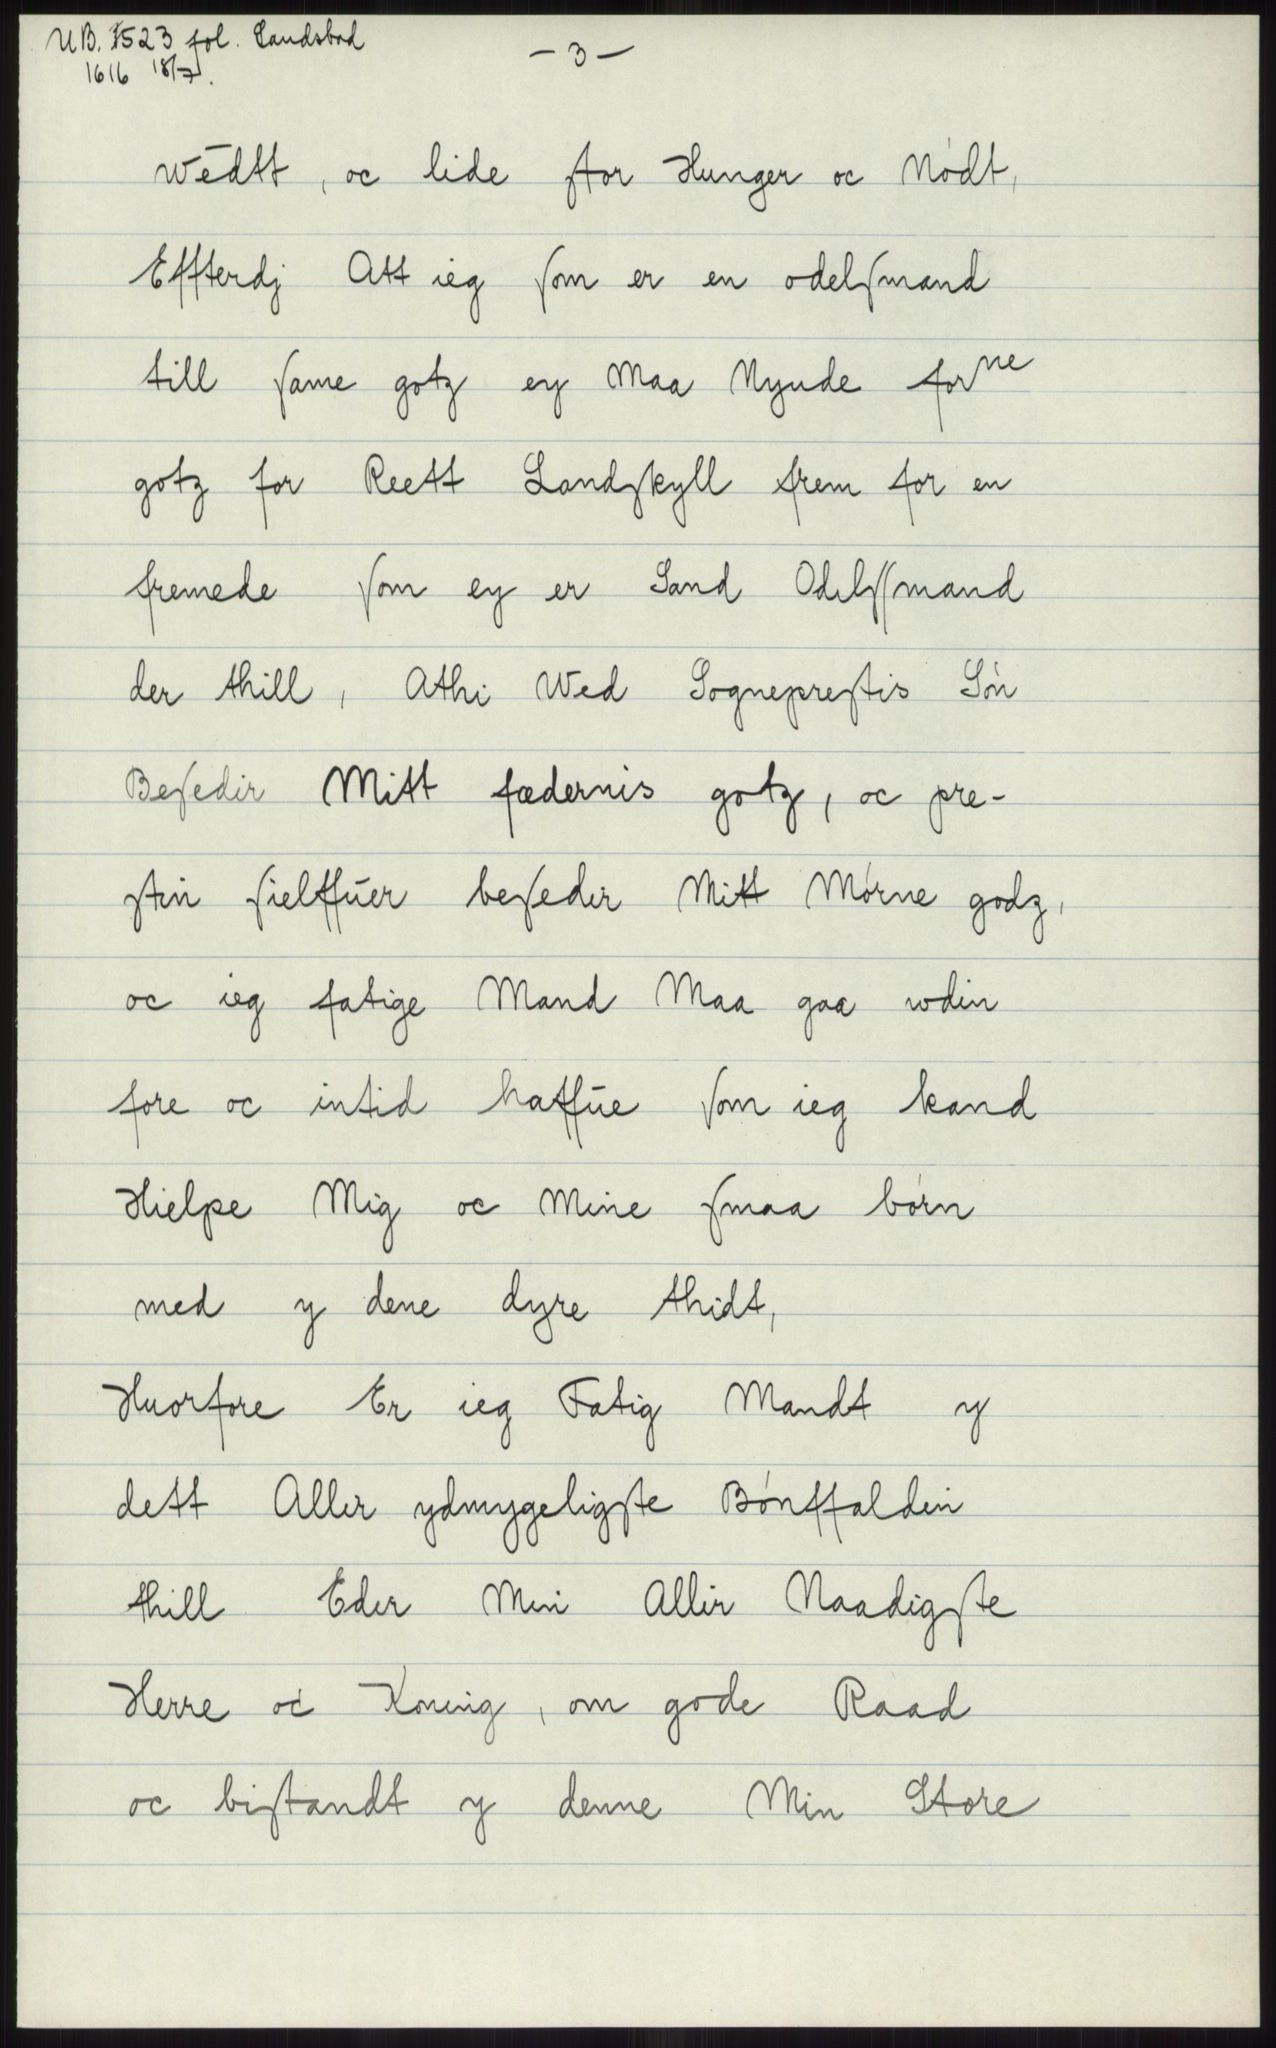 UB. 1523 fol. Landsbod
1616 18/7.
- 3 -
wēdtt, oc lide ffor Hunger oc Nødt,
Effterdj Att ieg som er en odelsmand
till same gotz ey Maa Nyude forne
gotz for Reett Landskyll frem for en
fremede som ey er Sand Odelssmand
der thill, Athi Wed Sogneprestis Søn
Besedir Mitt fædernis gotz, oc pre-
stin sielffūer besedir Mitt Mørne godz,
oc ieg fatige Mand Maa gaa wdin
fore oc intid haffūe som ieg kand
Hielpe Mig oc Mine smaa børn
med y dene dyre thidt,
Huorfore Er ieg Fatig Mandt y
dett Allir ydmygeligste Bønffaldin
thill Eder Min Allir Naadigste
Herre oc Koning, om gode Raad
oc bistandt y denne Min Store